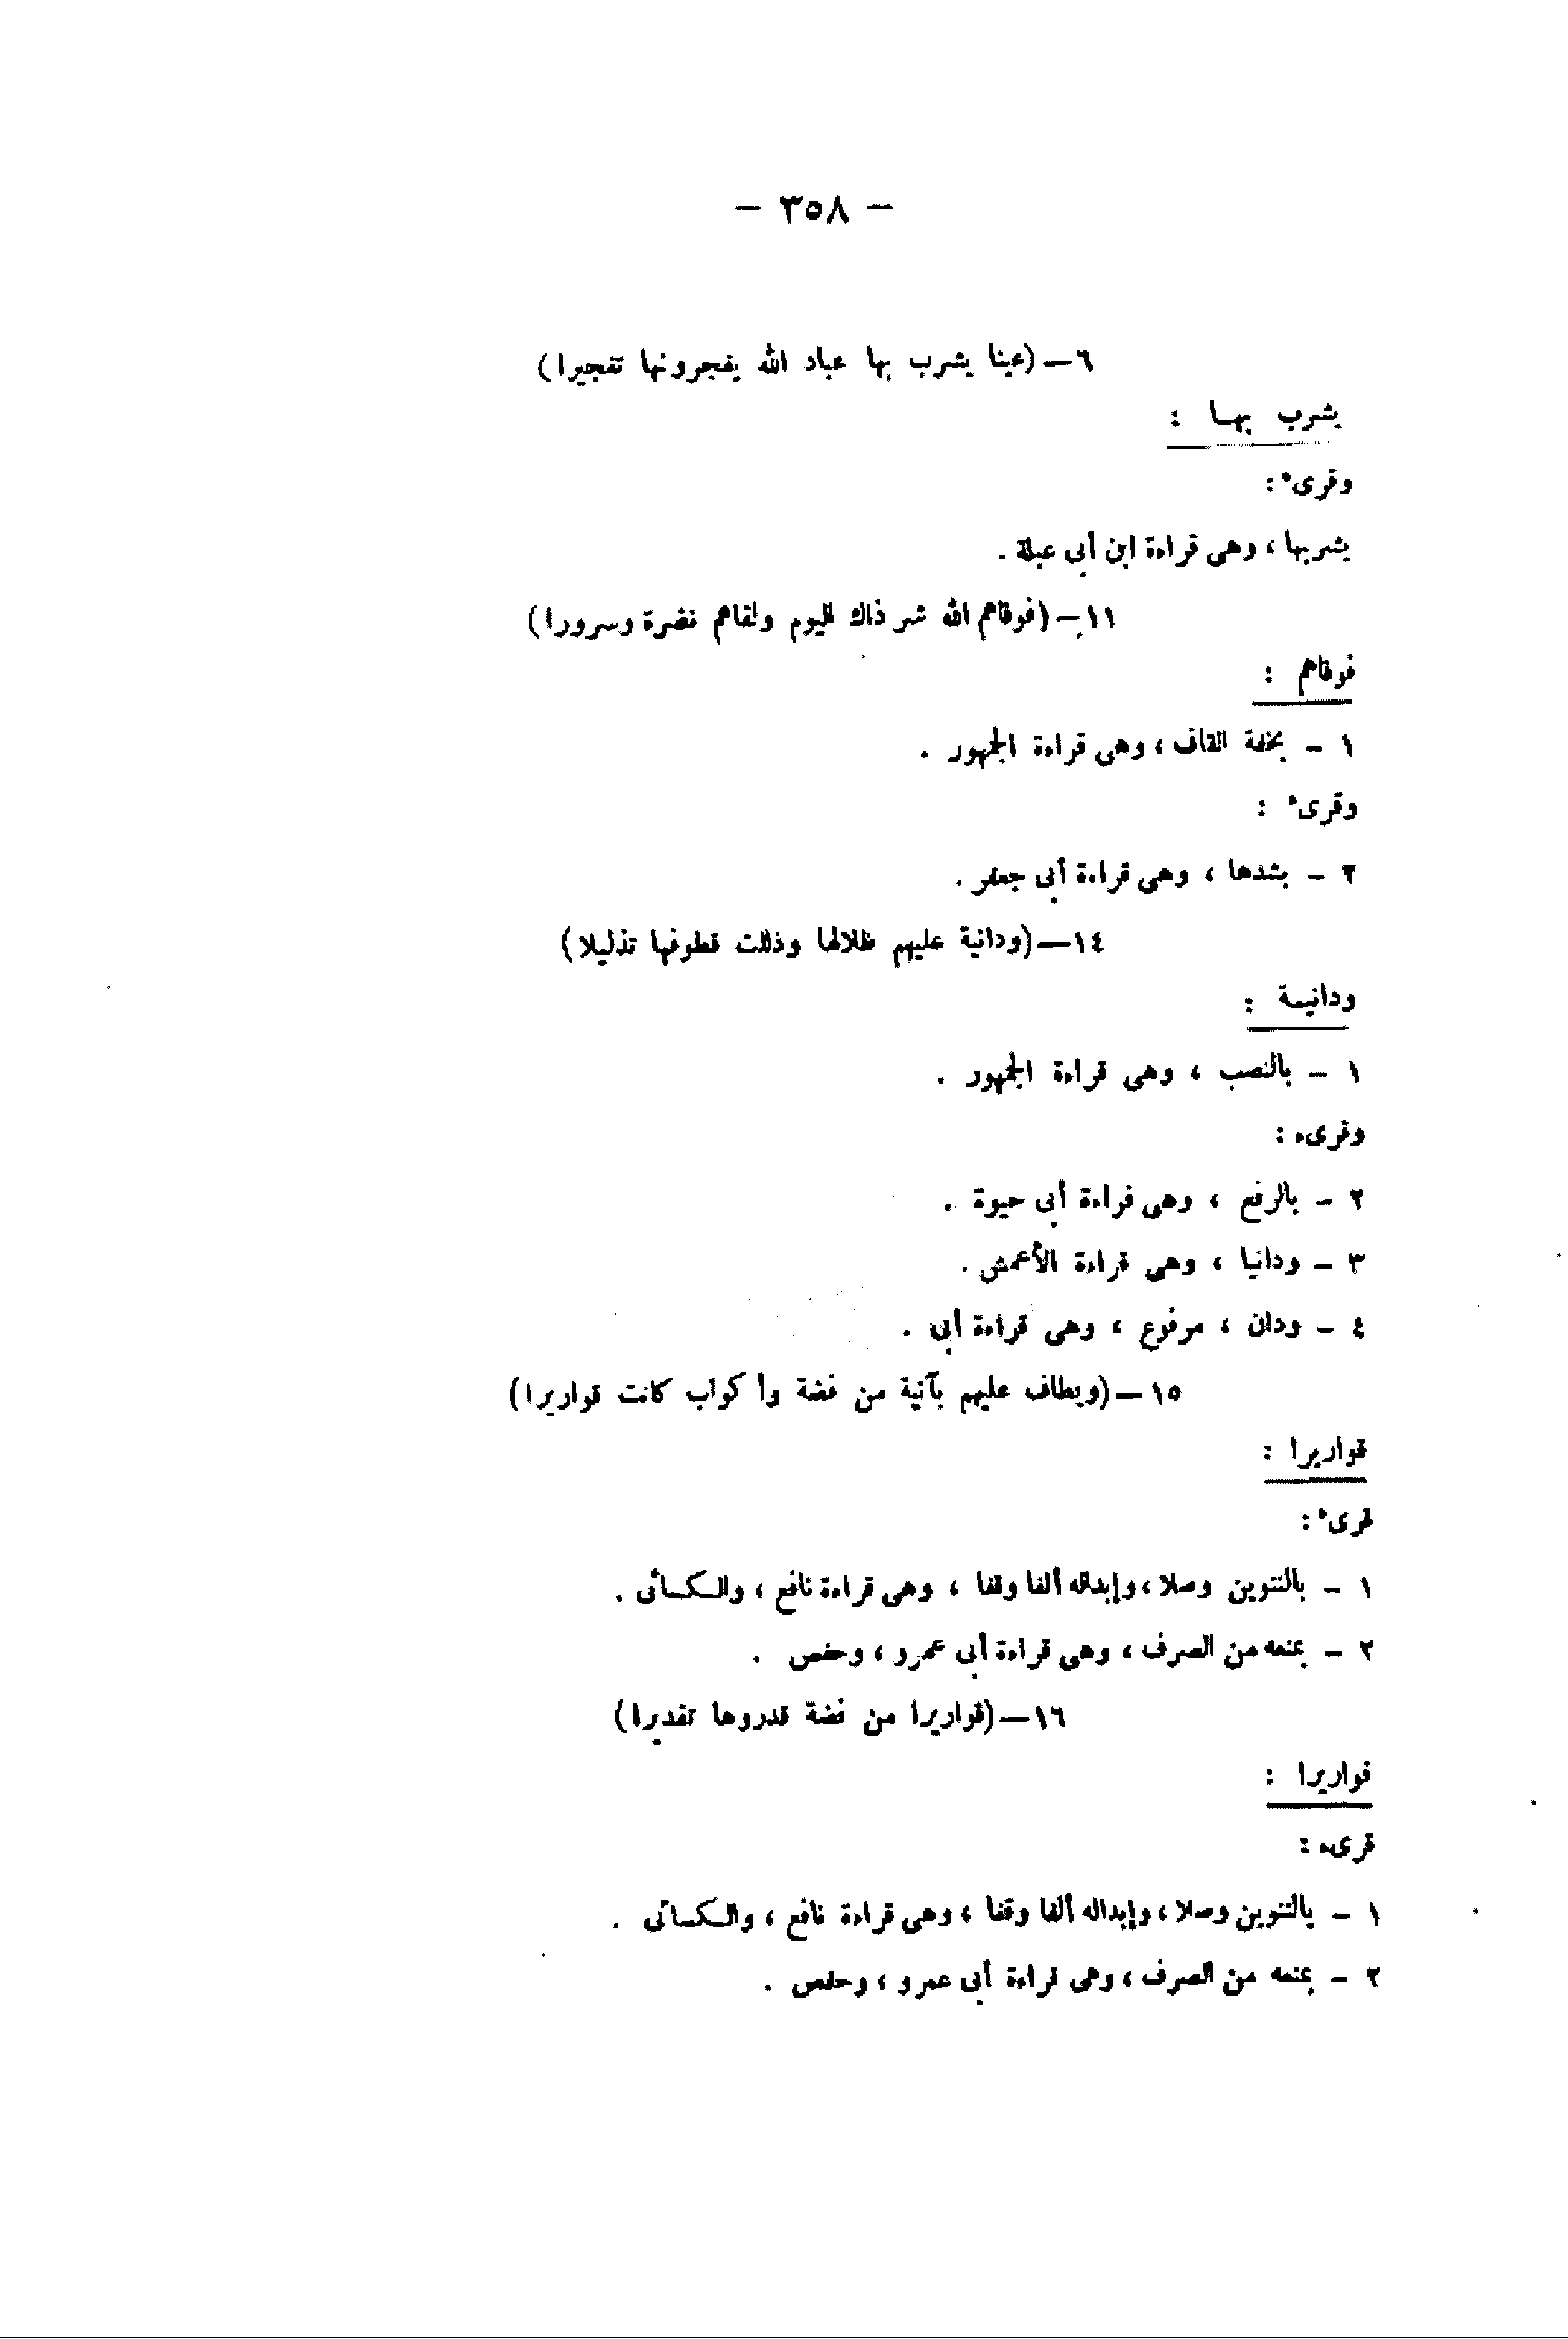 — ٣٥٨ —
٦ — (عينا يشرب بها عباد الله يفجرونها تفجيرا)
يشرب بهـا :
وقرىء :
يشربها ، وهى قراءة ابن أبى عبلة .
١١ — (فوقاهم الله شر ذلك اليوم ولقاهم نضرة وسرورا)
فوقاهم :
١ — بخفة القاف ، وهى قراءة الجمهور .
وقرىء :
٢ — بشدها ، وهى قراءة أبى جعفر .
١٤ — (ودانية عليهم ظلالها وذللت قطوفها تذليلا)
ودانيـة :
١ — بالنصب ، وهى قراءة الجمهور .
وقرىء :
٢ — بالرفع ، وهى قراءة أبى حيوة .
٣ — ودانيا ، وهى قراءة الأعمش .
٤ — ودان ، مرفوع ، وهى قراءة أبى .
١٥ — (ويطاف عليهم بآنية من فضة وأكواب كانت قواريرا)
قواريرا :
قرىء :
١ — بالتنوين وصلا ، وإبداله ألفا وقفا ، وهى قراءة نافع ، والـكسائى .
٢ — بمنعه من الصرف ، وهى قراءة أبى عمرو ، وحفص .
١٦ — (قواريرا من فضة قدروها تقديرا)
قواريرا :
قرىء :
١ — بالتنوين وصلا ، وإبداله ألفا وقفا ، وهى قراءة نافع ، والـكسائى .
٢ — بمنعه من الصرف ، وهى قراءة أبى عمرو ، وحفص .